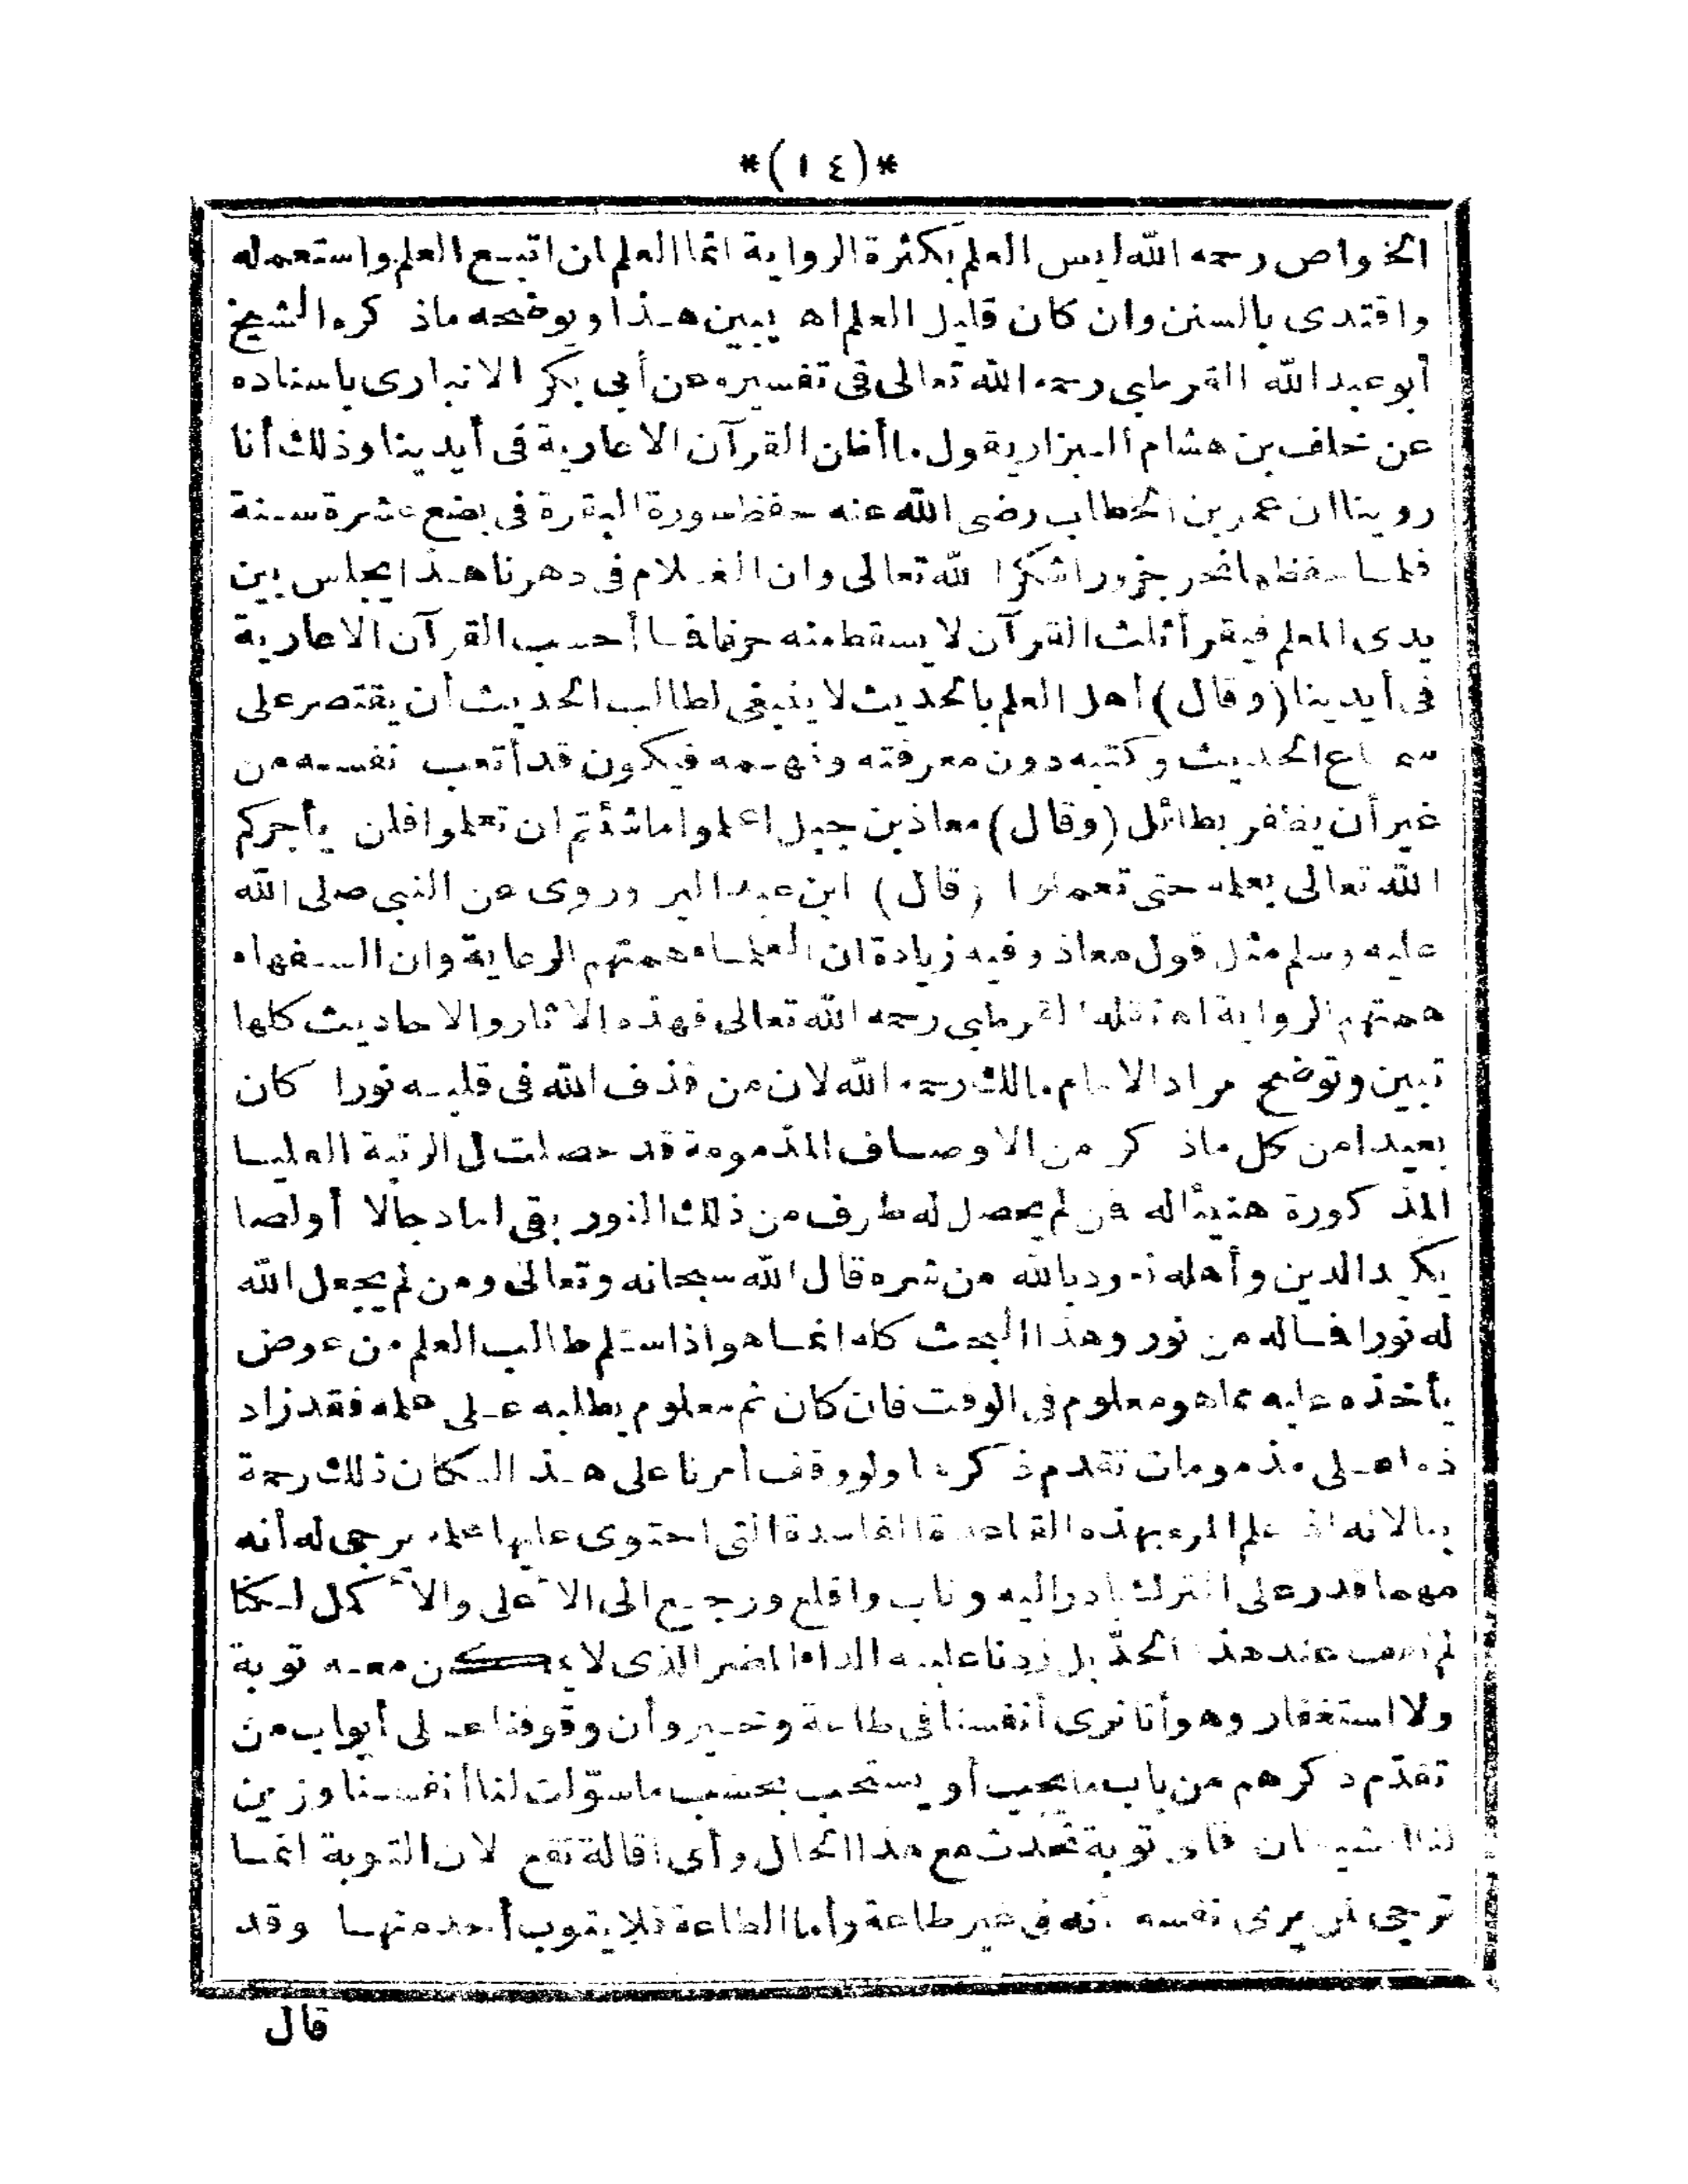 *(١٤)*
الخواص رحمه الله ليس العلم بكثرة الرواية انما العلم ان اتبع العلم واستعمله
واقتدى بالسنن وان كان قليل العلم اه يبين هذا ويوضحه ماذكره الشيخ
أبو عبد الله القرطبى رحمه الله تعالى فى تفسيره عن أبى بكر الانبارى باسناده
عن خلف بن هشام البزار يقول ما أظن القرآن الا عارية فى أيدينا وذلك أنا
روينا ان عمر بن الخطاب رضى الله عنه حفظ سورة البقرة فى بضع عشرة سنة
فلما حفظها نحر جزورا شكرا لله تعالى وان الغلام فى دهرنا هذا يجلس بين
يدى المعلم فيقرأ ثلث القرآن لا يسقط منه حرفا فما أحسب القرآن الا عارية
فى أيدينا (وقال) أهل العلم بالحديث لا ينبغى لطالب الحديث أن يقتصر على
سماع الحديث وكتبه دون معرفته وفهمه فيكون قد أتعب نفسه من
غير أن يظفر بطائل (وقال) معاذ بن جبل اعلموا ماشئتم ان تعلموا فلن يأجركم
الله تعالى بعلمه حتى تعملوا (قال) ابن عبد البر وروى عن النبى صلى الله
عليه وسلم مثل قول معاذ وفيه زيادة ان العلماء همتهم الرعاية وان السفهاء
همتهم الرواية اه نقله القرطبى رحمه الله تعالى فهذه الاثار والاحاديث كلها
تبين وتوضح مراد الامام مالك رحمه الله لان من قذف الله فى قلبه نورا كان
بعيدا من كل ماذكر من الاوصاف المذمومة قد حصلت له الرتبة العليا
المذكورة هنيئا له فمن لم يحصل له طرف من ذلك النور بقى اما دجالا أو لصا
يكيد الدين وأهله نعوذ بالله من شره قال الله سبحانه وتعالى ومن لم يجعل الله
له نورا فما له من نور وهذا البحث كله انما هو اذا سلم طالب العلم من عوض
يأخذه عليه مما هو معلوم فى الوقت فان كان ثم معلوم يطلبه على عمله فقد زاد
ذما على مذمومات تقدم ذكرها ولو وقف أمرنا على هذا لكان ذلك رحمة
بنا لانه اذا علم المرء بهذه القاعدة الفاسدة التى احتوى عليها عمله يرجى له أنه
مهما قدر على الترك بادر اليه وتاب واقلع ورجع الى الاعلى والاكمل لكنا
لم نقف عند هذا الحد بل زدنا عليه الداء المضر الذى لا يمكن معه توبة
ولا استغفار وهو أنا نرى أنفسنا فى طاعة وخير وأن وقوفنا على أبواب من
تقدم ذكرهم من باب ما يجب أو يستحب بحسب ما سولت لنا أنفسنا وزين
لنا الشيطان فأى توبة تحدث مع هذا الحال وأى اقالة تقع لان التوبة انما
ترجى لمن يرى نفسه أنه فى غير طاعة وأما الطاعة فلا يتوب أحد منها وقد
قال